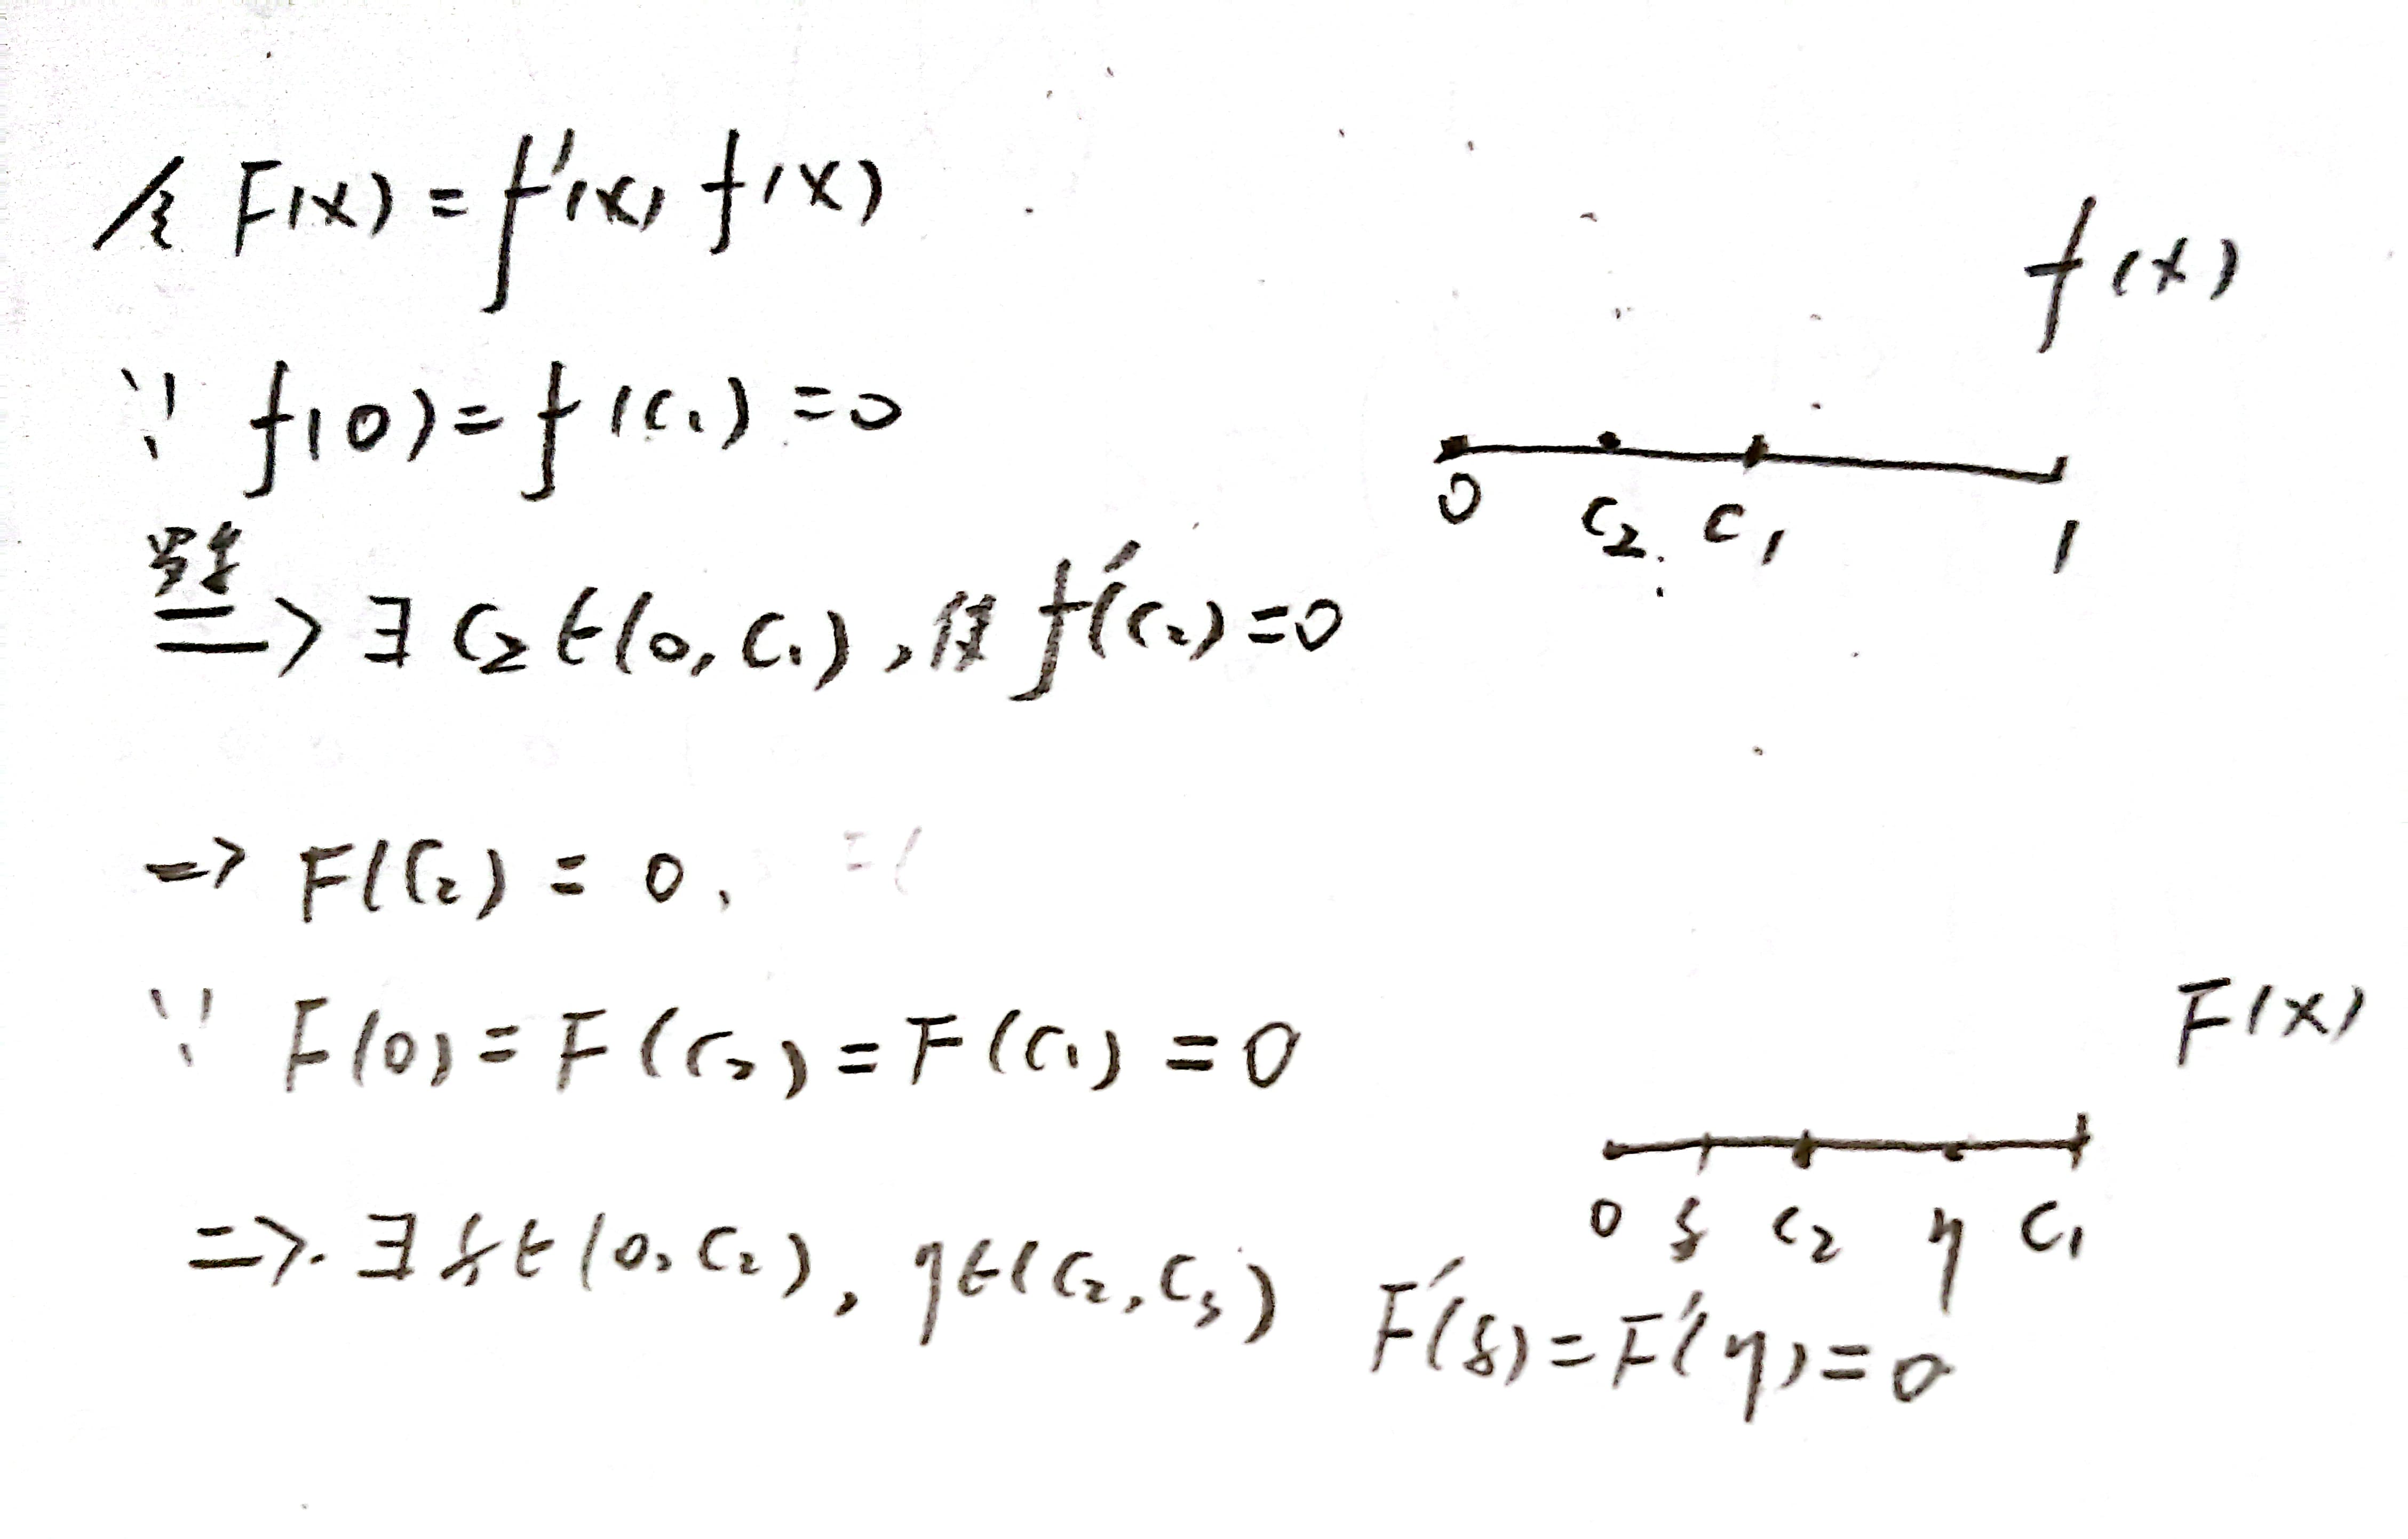 令 F(x) = f'(x) f(x)
f(x)
∵ f(0) = f(c₁) = 0
0 c₂ c₁ 1
罗尔
=> ∃ c₂ ∈ (0, c₁), 使 f'(c₂) = 0
=> F(c₂) = 0,
∵ F(0) = F(c₂) = F(c₁) = 0
F(x)
0 ξ c₂ η c₁
=> ∃ ξ ∈ (0, c₂), η ∈ (c₂, c₃) F'(ξ) = F'(η) = 0